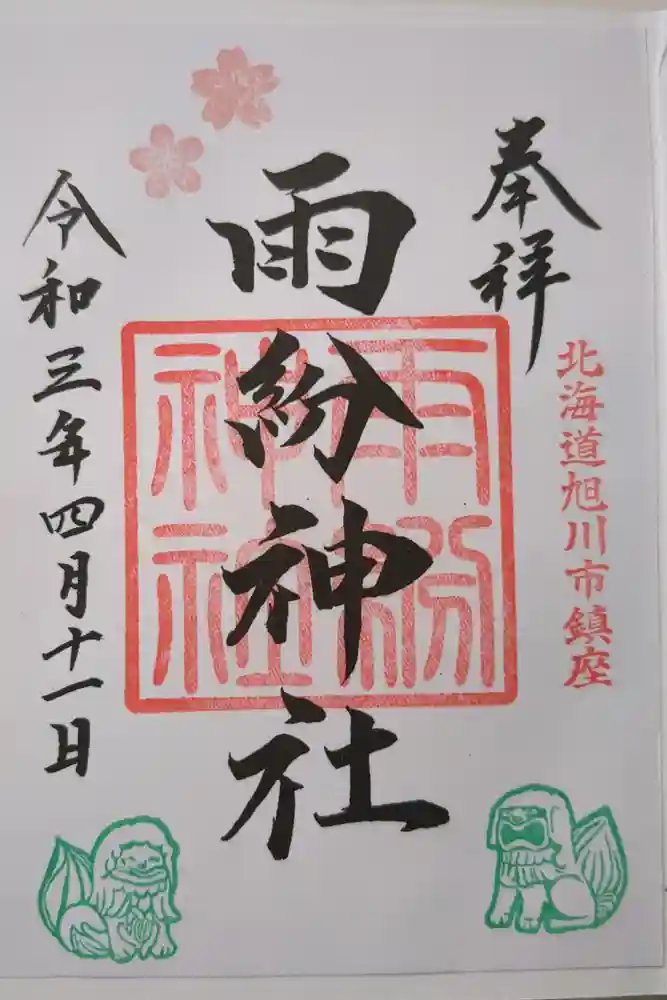 奉祥
北海道旭川市鎮座
雨紛神社
雨紛
神社
令和三年四月十一日